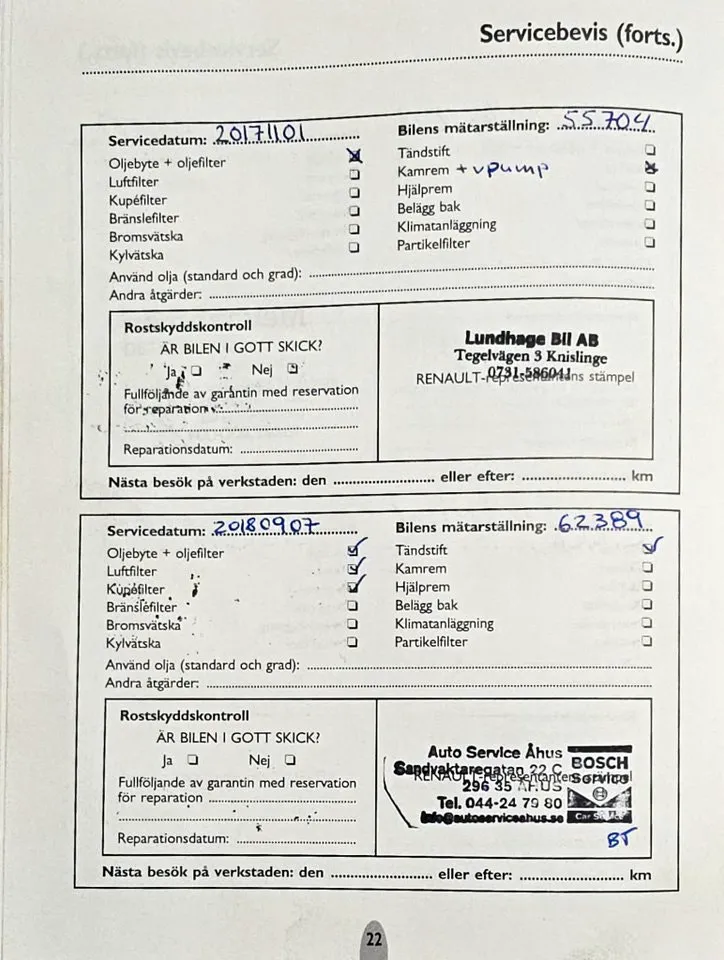 Servicebevis (forts.)
Servicedatum: 20171101
Bilens mätarställning: 55704
Oljebyte + oljefilter
Tändstift
Luftfilter
Kamrem + vpump
Kupéfilter
Hjälprem
Bränslefilter
Belägg bak
Bromsvätska
Klimatanläggning
Kylvätska
Partikelfilter
Använd olja (standard och grad):
Andra åtgärder:
Rostskyddskontroll
ÄR BILEN I GOTT SKICK?
Ja Nej
Fullföljande av garantin med reservation
för reparation
Reparationsdatum:
Lundhage Bil AB
Tegelvägen 3 Knislinge
0731-586041
RENAULT-representantens stämpel
Nästa besök på verkstaden: den eller efter: km
Servicedatum: 20180907
Bilens mätarställning: 62389
Oljebyte + oljefilter
Tändstift
Luftfilter
Kamrem
Kupéfilter
Hjälprem
Bränslefilter
Belägg bak
Bromsvätska
Klimatanläggning
Kylvätska
Partikelfilter
Använd olja (standard och grad):
Andra åtgärder:
Rostskyddskontroll
ÄR BILEN I GOTT SKICK?
Ja Nej
Fullföljande av garantin med reservation
för reparation
Reparationsdatum:
Auto Service Åhus
Sandvaktaregatan 22 C
RENAULT-representantens stämpel
296 35 ÅHUS
Tel. 044-24 79 80
info@autoserviceahus.se
BOSCH
Service
Car Service
BT
Nästa besök på verkstaden: den eller efter: km
22